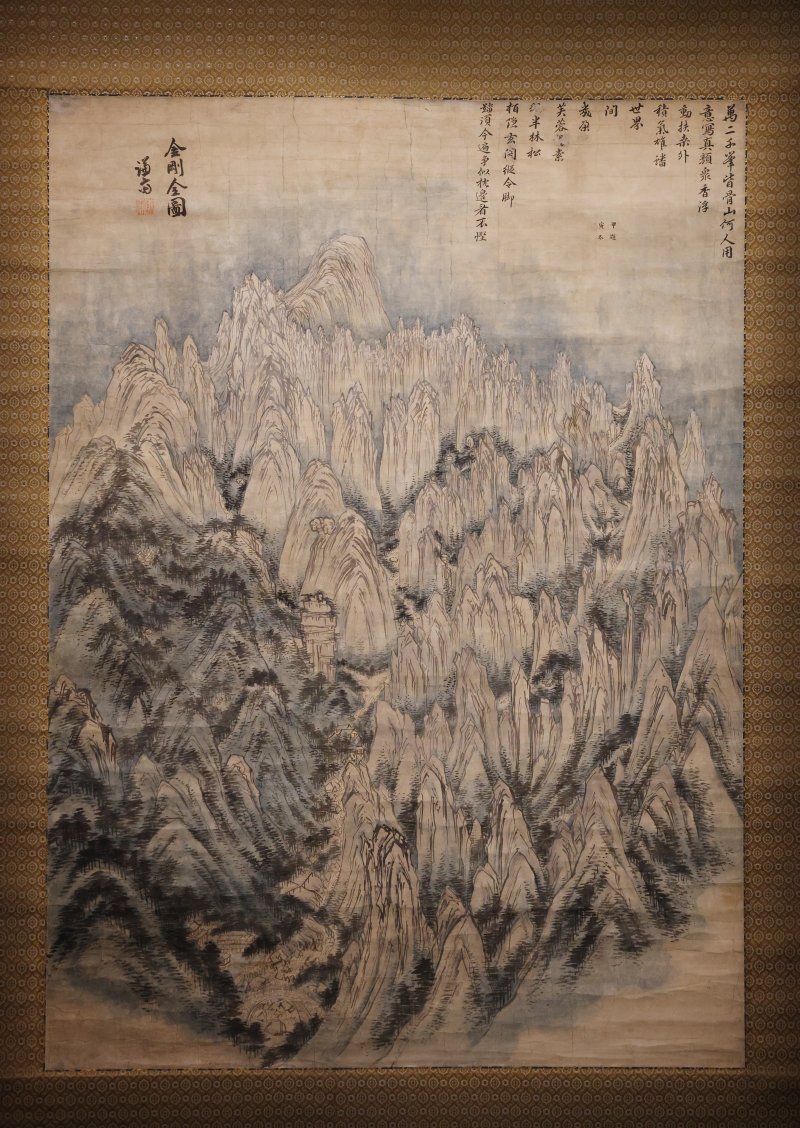 萬二千峯皆骨山何人用
意寫真顔衆香浮
動扶桑外
積氣雄蟠
世界
間
幾朶
芙蓉揚素
彩半林松
栢隱玄関縱令脚
踏須今遍爭似枕邊看不慳
甲寅
冬題
金剛全圖
謙齋